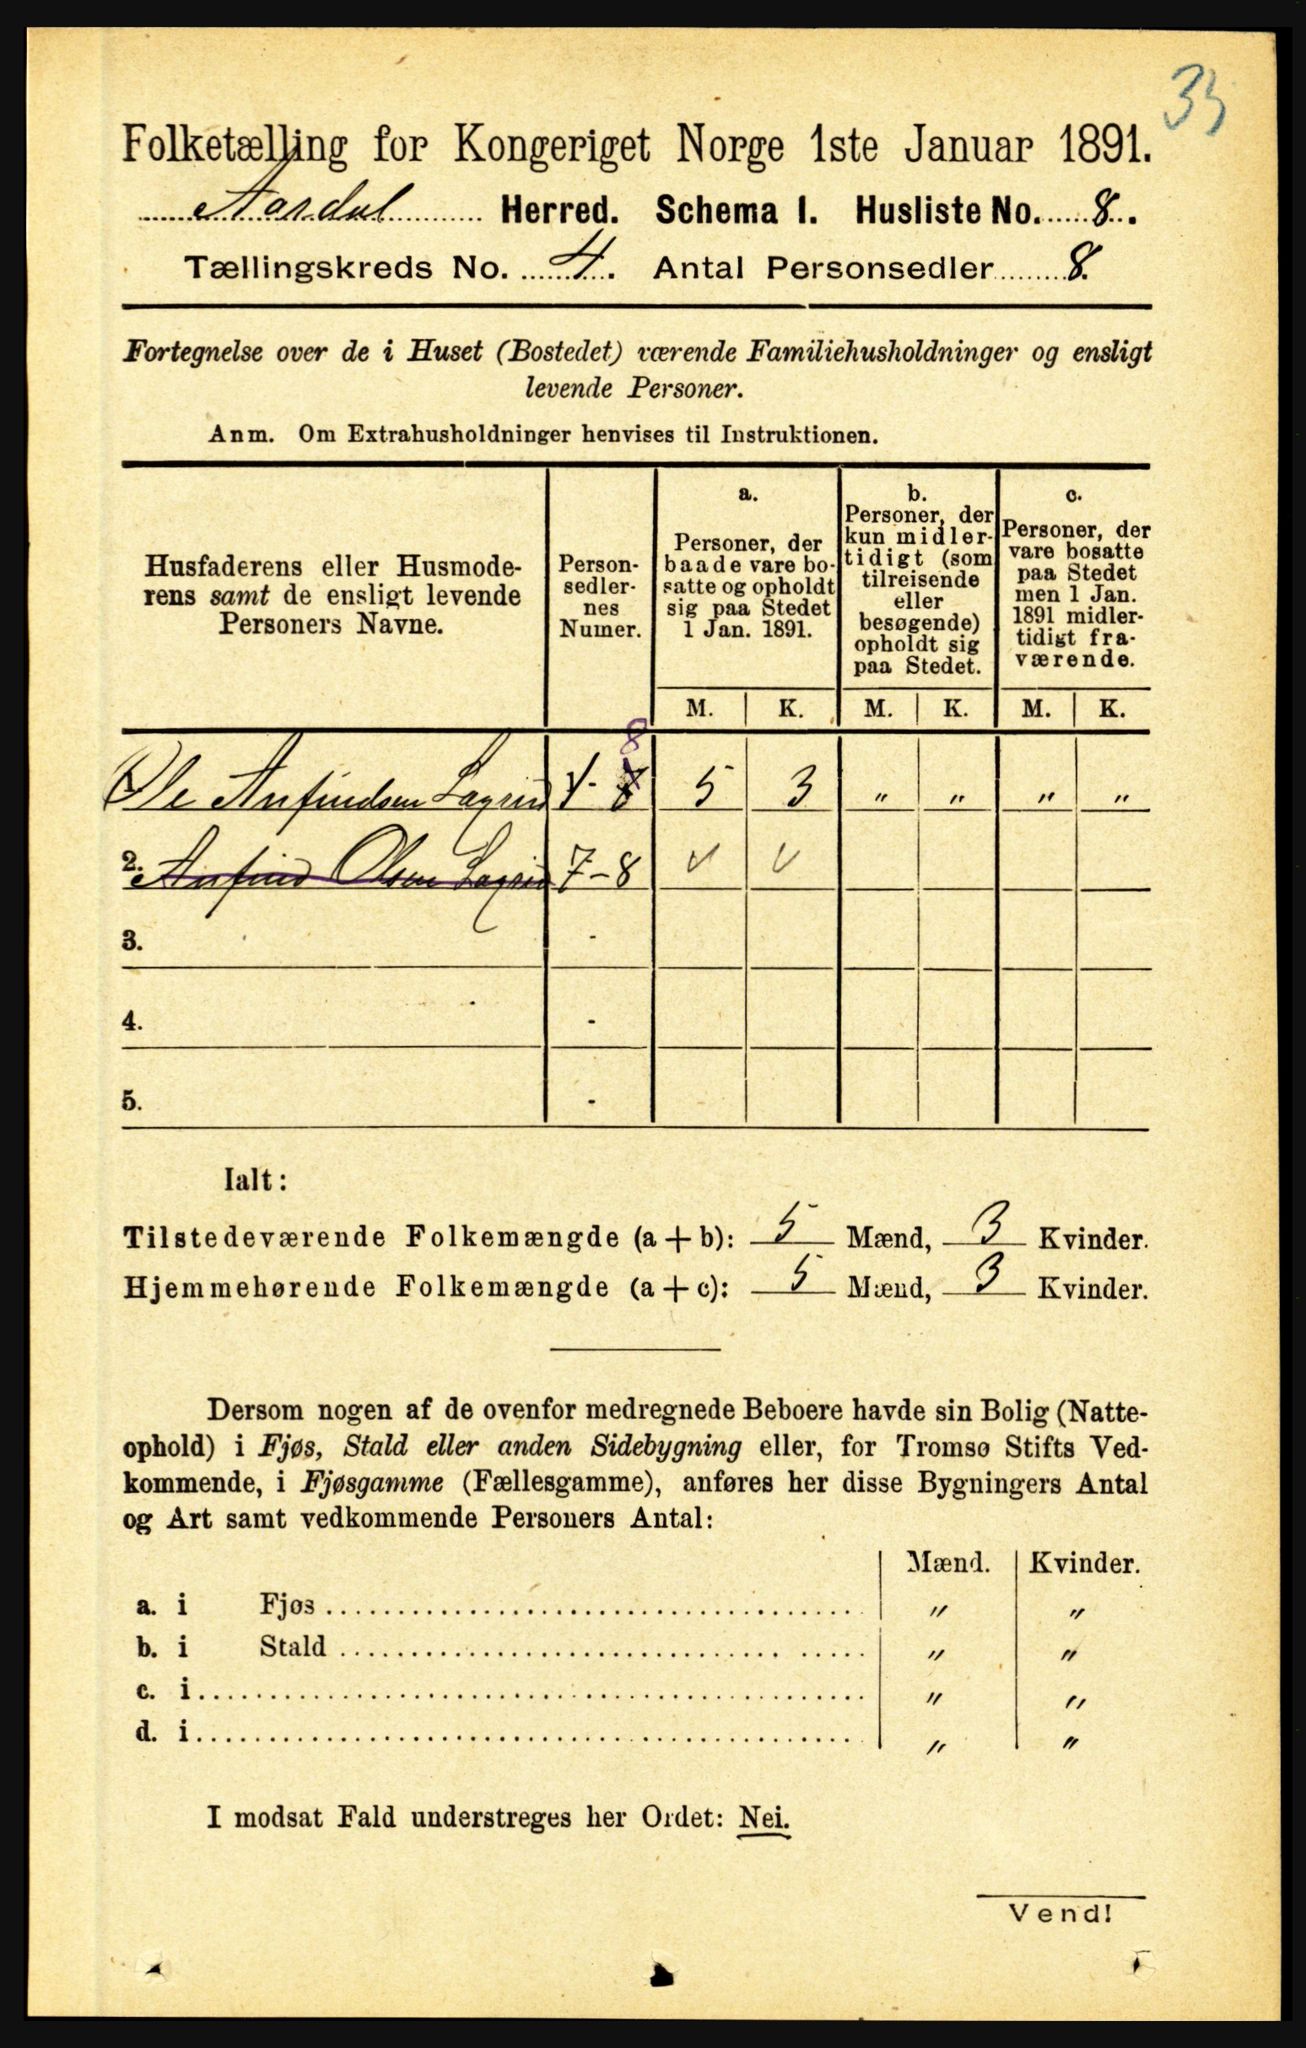 35
Folketælling for Kongeriget Norge 1ste Januar 1891.
Aardal Herred. Schema I. Husliste No. 8.
Tællingskreds No. 4. Antal Personsedler 8.
Fortegnelse over de i Huset (Bostedet) værende Familiehusholdninger og ensligt
levende Personer.
Anm. Om Extrahusholdninger henvises til Instruktionen.
Husfaderens eller Husmode-
rens samt de ensligt levende
Personers Navne.
Person-
sedler-
nes
Numer.
a.
Personer, der
baade vare bo-
satte og opholdt
sig paa Stedet
1 Jan. 1891.
b.
Personer, der
kun midler-
tidigt (som
tilreisende
eller
besøgende)
opholdt sig
paa Stedet.
c.
Personer, der
vare bosatte
paa Stedet
men 1 Jan.
1891 midler-
tidigt fra-
værende.
M. K. M. K. M. K.
8
Ole Anfindsen 1 - 8 5 3 " " " "
2. Anfind Olsen 7-8 v v
3. -
4. -
5. -
Ialt:
Tilstedeværende Folkemængde (a + b): 5 Mænd, 3 Kvinder.
Hjemmehørende Folkemængde (a + c): 5 Mænd, 3 Kvinder.
Dersom nogen af de ovenfor medregnede Beboere havde sin Bolig (Natte-
ophold) i Fjøs, Stald eller anden Sidebygning eller, for Tromsø Stifts Ved-
kommende, i Fjøsgamme (Fællesgamme), anføres her disse Bygningers Antal
og Art samt vedkommende Personers Antal:
Mænd. Kvinder.
a. i Fjøs " "
b. i Stald " "
c. i " "
d. i " "
I modsat Fald understreges her Ordet: Nei.
Vend!